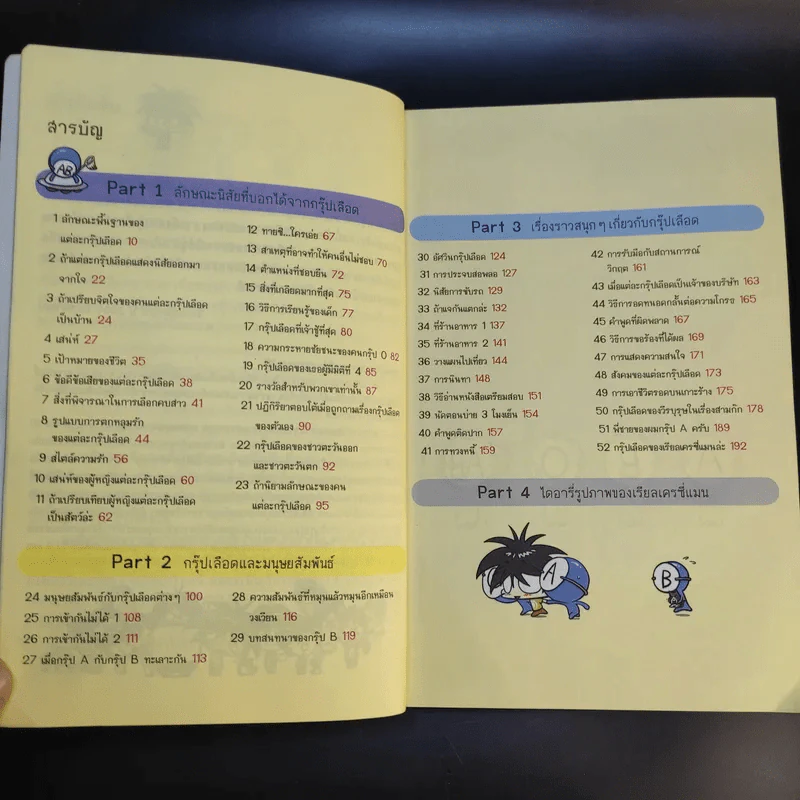 สารบัญ
AB
Part 1 ลักษณะนิสัยที่บอกได้จากกรุ๊ปเลือด
1 ลักษณะพื้นฐานของ
แต่ละกรุ๊ปเลือด 10
2 ถ้าแต่ละกรุ๊ปเลือดแสดงนิสัยออกมา
จากใจ 22
3 ถ้าเปรียบจิตใจของคนแต่ละกรุ๊ปเลือด
เป็นบ้าน 24
4 เสน่ห์ 27
5 เป้าหมายของชีวิต 35
6 ข้อดีข้อเสียของแต่ละกรุ๊ปเลือด 38
7 สิ่งที่พิจารณาในการเลือกคบสาว 41
8 รูปแบบการตกหลุมรัก
ของแต่ละกรุ๊ปเลือด 44
9 สไตล์ความรัก 56
10 เสน่ห์ของผู้หญิงแต่ละกรุ๊ปเลือด 60
11 ถ้าเปรียบเทียบผู้หญิงแต่ละกรุ๊ปเลือด
เป็นสัตว์ล่ะ 62
12 ทายซิ...ใครเอ่ย 67
13 สาเหตุที่อาจทำให้คนอื่นไม่ชอบ 70
14 ตำแหน่งที่ชอบยืน 72
15 สิ่งที่เกลียดมากที่สุด 75
16 วิธีการเรียนรู้ของเด็ก 77
17 กรุ๊ปเลือดที่เจ้าชู้ที่สุด 80
18 ความกระหายชัยชนะของคนกรุ๊ป O 82
19 กรุ๊ปเลือดของเธอผู้มีมิติที่ 4 85
20 รางวัลสำหรับพวกเขาเท่านั้น 87
21 ปฏิกิริยาตอบโต้เมื่อถูกถามเรื่องกรุ๊ปเลือด
ของตัวเอง 90
22 กรุ๊ปเลือดของชาวตะวันออก
และชาวตะวันตก 92
23 ถ้านิยามลักษณะของคน
แต่ละกรุ๊ปเลือด 95
Part 2 กรุ๊ปเลือดและมนุษยสัมพันธ์
24 มนุษยสัมพันธ์กับกรุ๊ปเลือดต่างๆ 100
25 การเข้ากันไม่ได้ 1 108
26 การเข้ากันไม่ได้ 2 111
27 เมื่อกรุ๊ป A กับกรุ๊ป B ทะเลาะกัน 113
28 ความสัมพันธ์ที่หมุนแล้วหมุนอีกเหมือน
วงเวียน 116
29 บทสนทนาของกรุ๊ป B 119
Part 3 เรื่องราวสนุกๆ เกี่ยวกับกรุ๊ปเลือด
30 อัศวินกรุ๊ปเลือด 124
31 การประจบสอพลอ 127
32 นิสัยการขับรถ 129
33 ถ้าแจกันแตกล่ะ 132
34 ที่ร้านอาหาร 1 137
35 ที่ร้านอาหาร 2 141
36 วางแผนไปเที่ยว 144
37 การนินทา 148
38 วิธีอ่านหนังสือเตรียมสอบ 151
39 นัดตอนบ่าย 3 โมงเย็น 154
40 คำพูดติดปาก 157
41 การทวงหนี้ 159
42 การรับมือกับสถานการณ์
วิกฤต 161
43 เมื่อแต่ละกรุ๊ปเลือดเป็นเจ้าของบริษัท 163
44 วิธีการอดทนอดกลั้นต่อความโกรธ 165
45 คำพูดที่ผิดพลาด 167
46 วิธีการขอร้องที่ได้ผล 169
47 การแสดงความสนใจ 171
48 สังคมของแต่ละกรุ๊ปเลือด 173
49 การเอาชีวิตรอดบนเกาะร้าง 175
50 กรุ๊ปเลือดของวีรบุรุษในเรื่องสามก๊ก 178
51 พี่ชายของผมกรุ๊ป A ครับ 189
52 กรุ๊ปเลือดของเรียลเครซี่แมนล่ะ 192
Part 4 ไดอารี่รูปภาพของเรียลเครซี่แมน
A
B